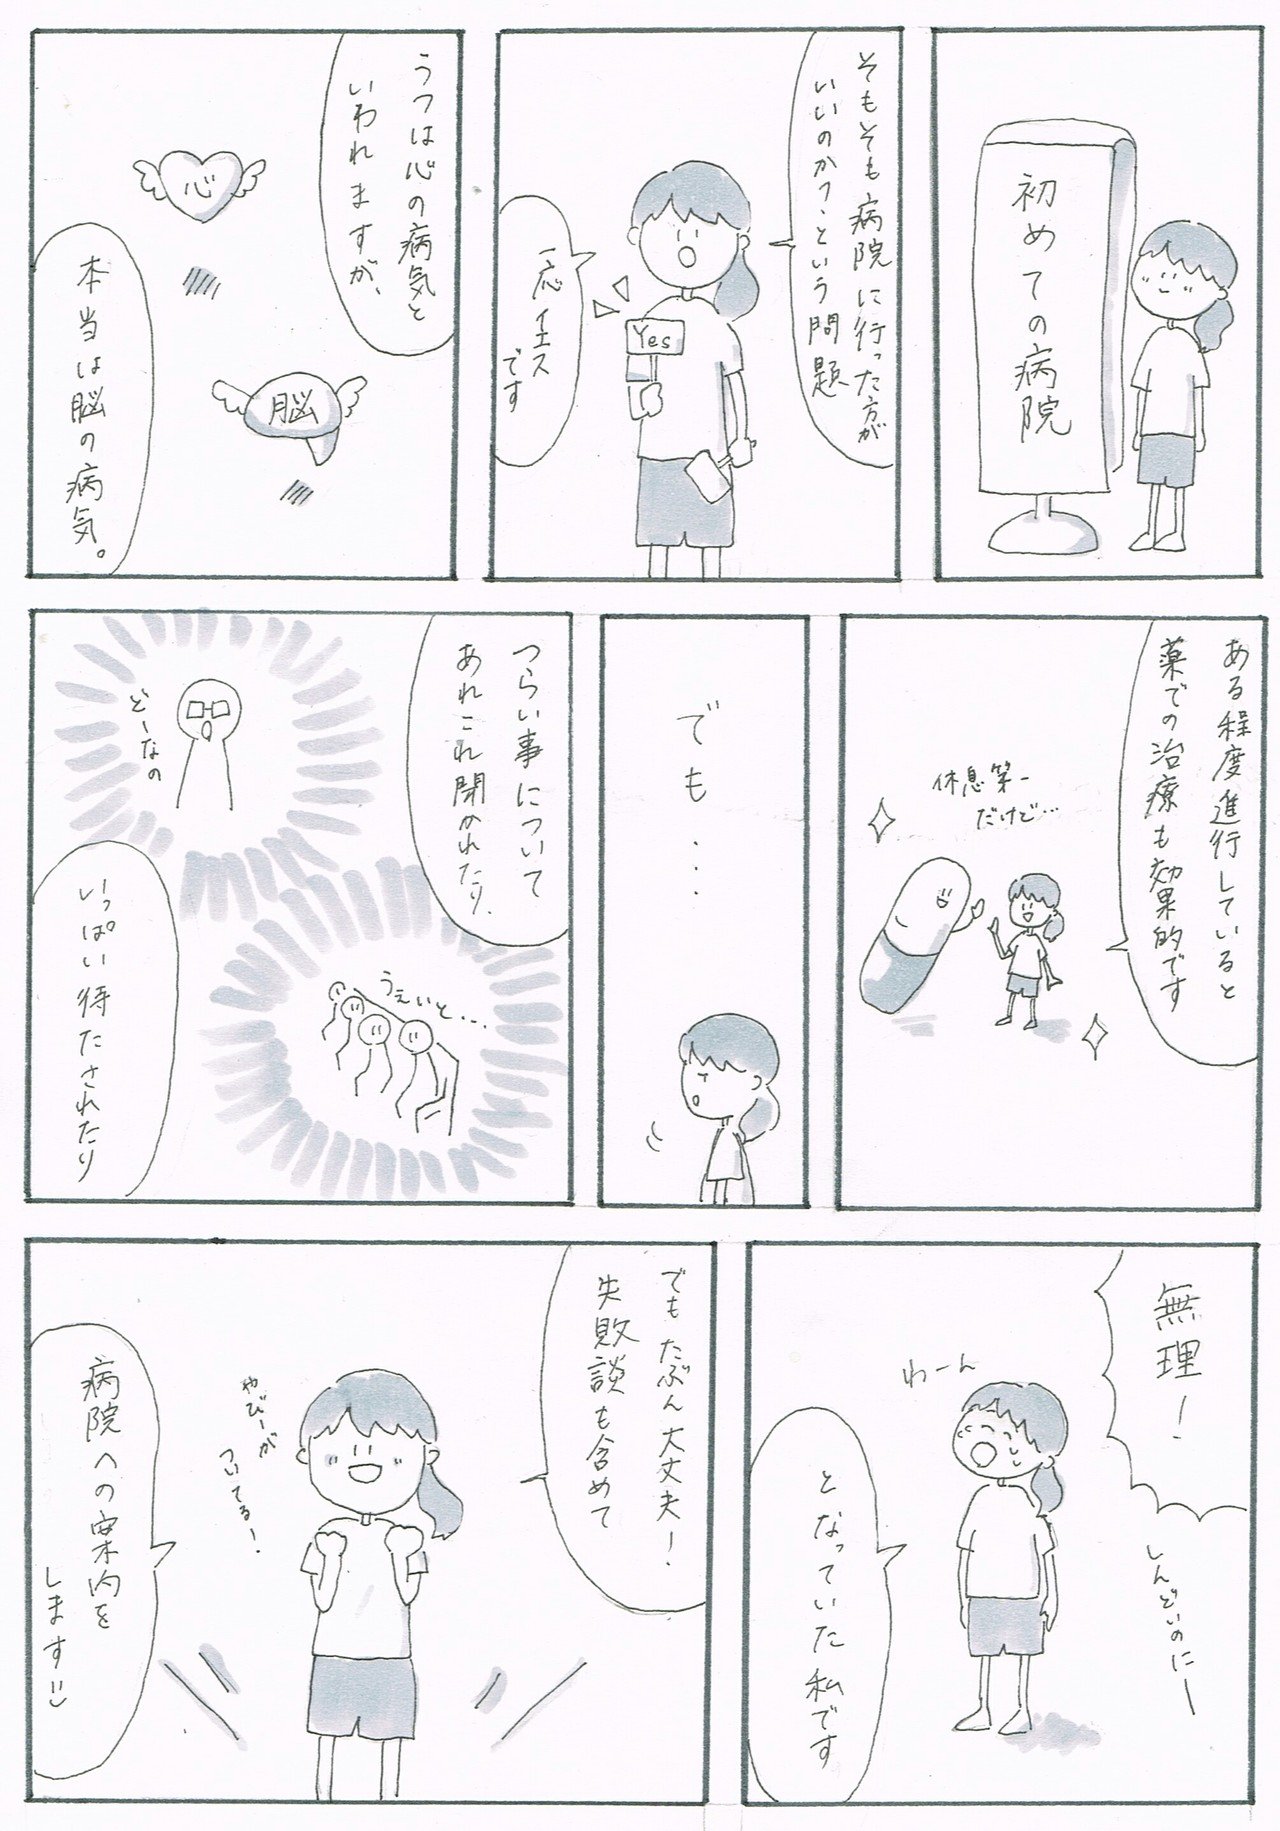 初めての病院
そもそも病院に行った方が
いいのかっという問題
Yes
一応イエス
です
うつは心の病気と
いわれますが、
心
脳
本当は脳の病気。
ある程度進行していると
薬での治療も効果的です
休息第一
だけど…
でも...
つらい事について
あれこれ聞かれたり、
どーなの
うぇいと...
いっぱい待たされたり
無理！
しんどいのにー
わーん
となっていた私です
でもたぶん大丈夫！
失敗談も含めて
やびーが
ついてる！
病院への案内を
します!!